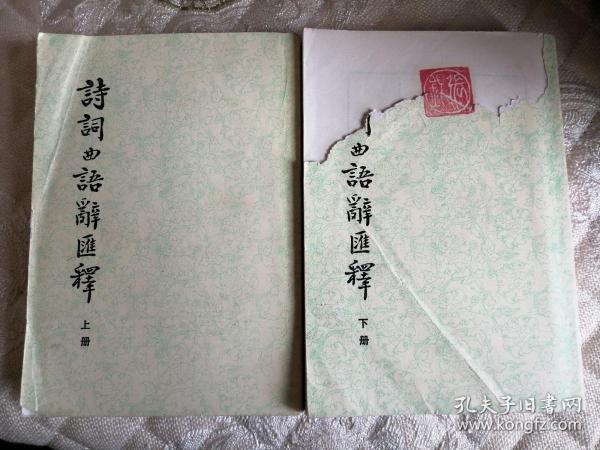 詩詞曲語辭匯釋
上册
曲語辭匯釋
下册
孔夫子旧書网
www.kongfz.com